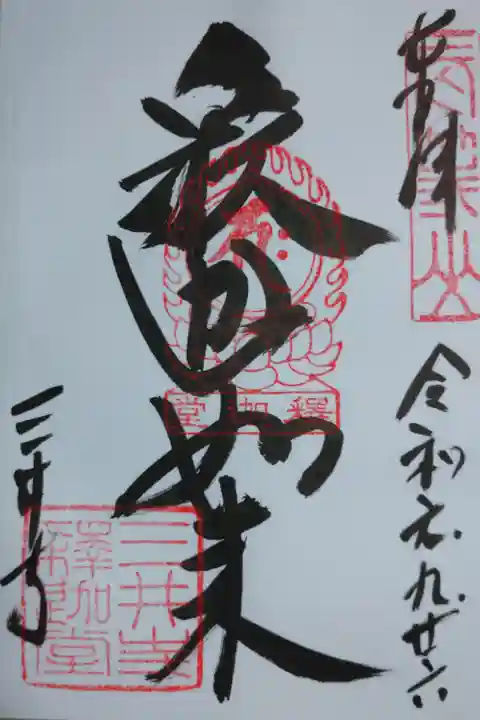 奉拝
長等山
令和元.九.廿六
釈迦如来
釋迦堂
三井寺
三井寺
釋迦堂